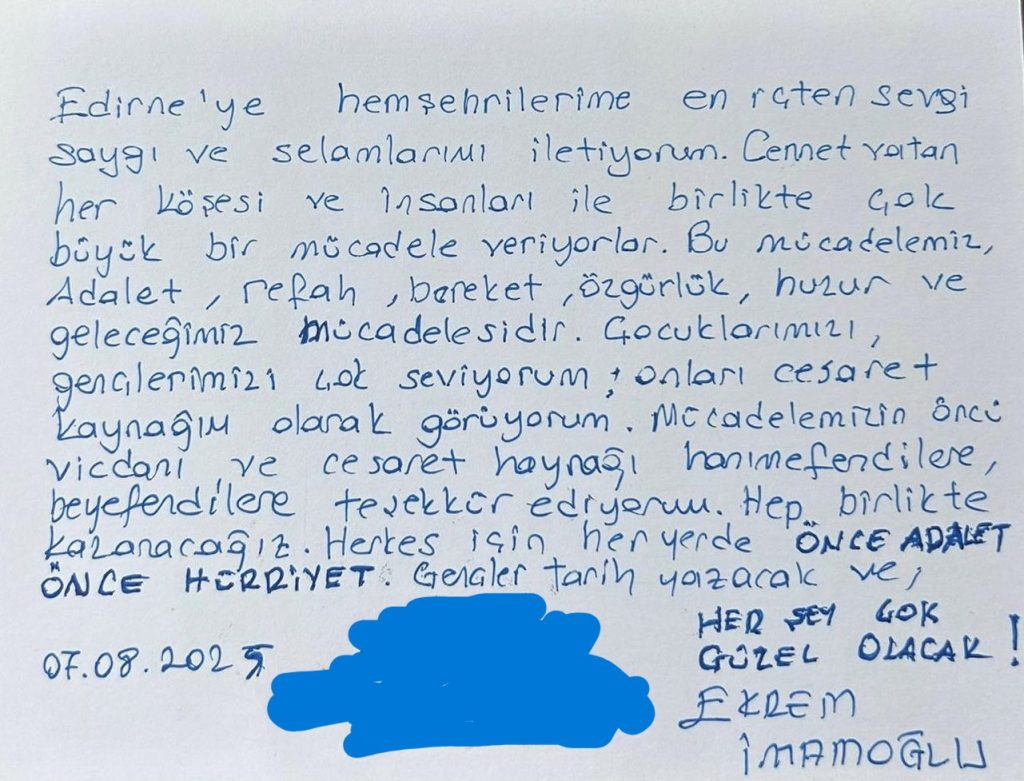 Edirne'ye hemşehrilerime en içten sevgi
saygı ve selamlarımı iletiyorum. Cennet vatan
her köşesi ve insanları ile birlikte çok
büyük bir mücadele veriyorlar. Bu mücadelemiz,
Adalet, refah, bereket, özgürlük, huzur ve
geleceğimiz mücadelesidir. Çocuklarımızı,
gençlerimizi çok seviyorum; onları cesaret
kaynağım olarak görüyorum. Mücadelemizin öncü
vicdanı ve cesaret kaynağı hanımefendilere,
beyefendilere teşekkür ediyorum. Hep birlikte
kazanacağız. Herkes için her yerde ÖNCE ADALET
ÖNCE HÜRRİYET. Gençler tarih yazacak ve;
HER ŞEY ÇOK
GÜZEL OLACAK!
07.08.2025
EKREM
İMAMOĞLU